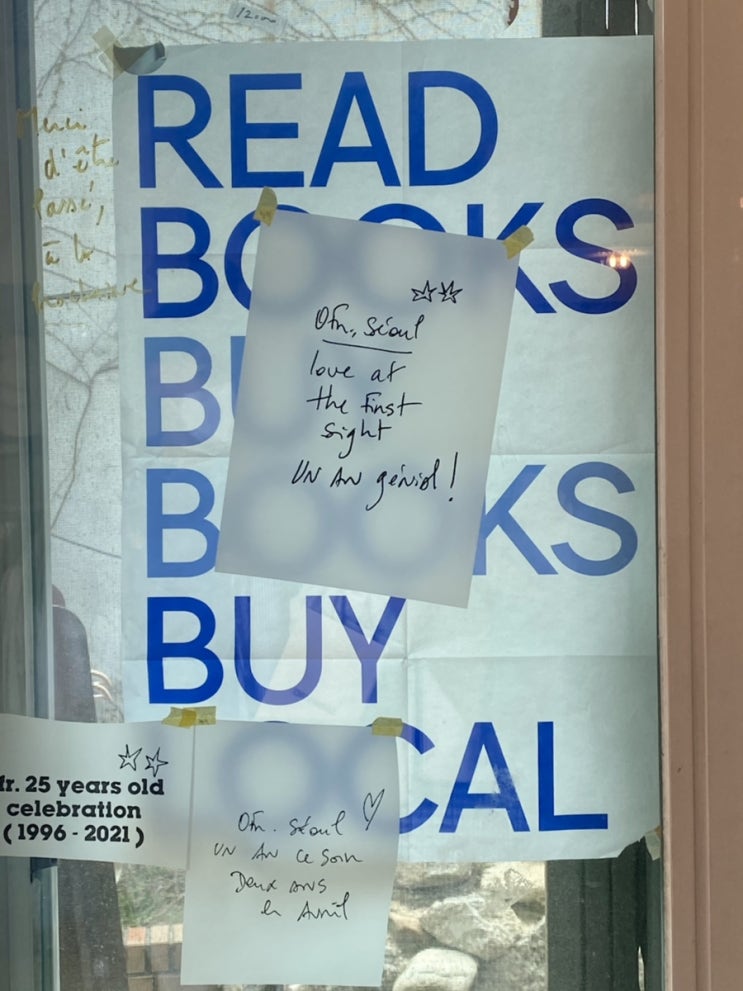 Merci
d'être
passé,
à la
prochaine
READ
BOOKS
BU
BOOKS
BUY
CAL
Ofr. Séoul
love at
the first
sight
UN AN génial !
fr. 25 years old
celebration
( 1996 - 2021 )
Ofr. Séoul
UN AN ce soir
Deux ANS
en Avril